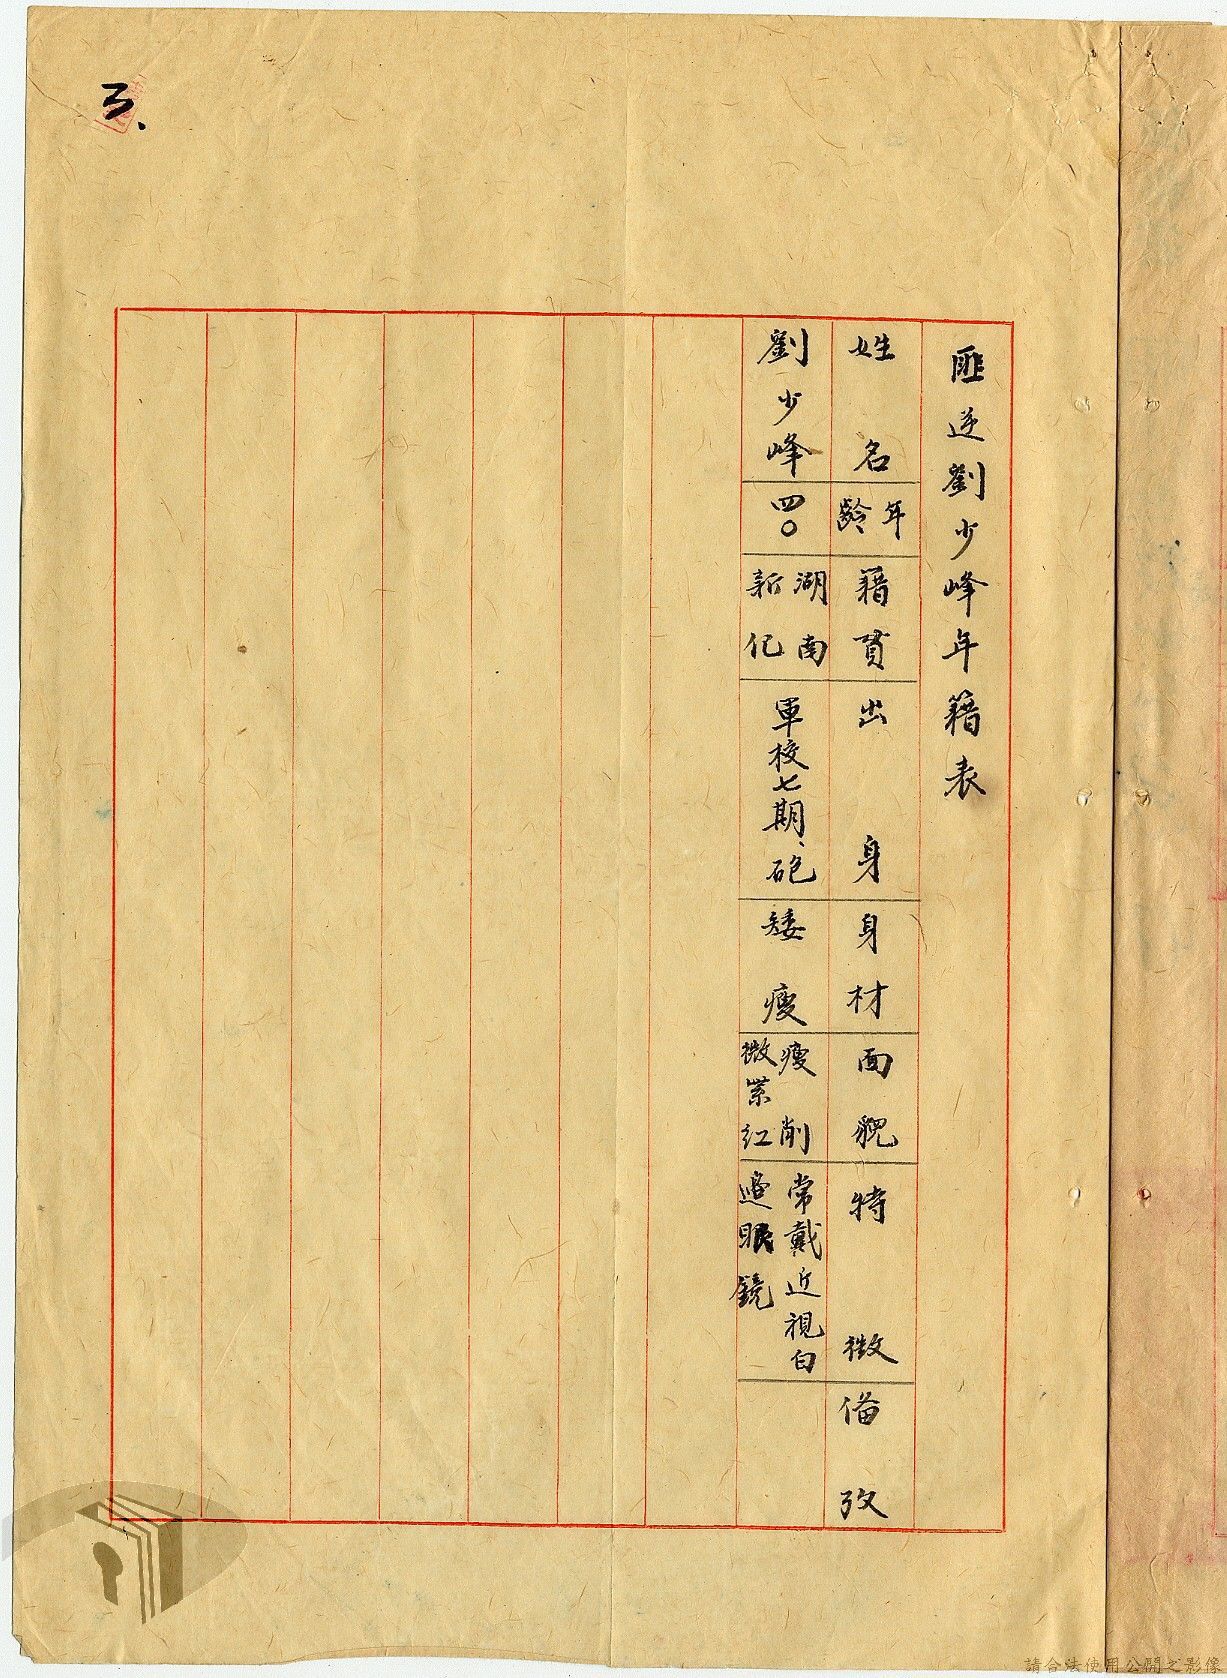 3、
匪逆劉少峰年籍表
姓名
年齡
籍貫
出身
身材
面貌
特徵
備攷
劉少峰
四〇
湖南
新化
軍校七期、砲
矮瘦
瘦削
微紫紅
常戴近視白
邊眼鏡
請合法使用公開之影像